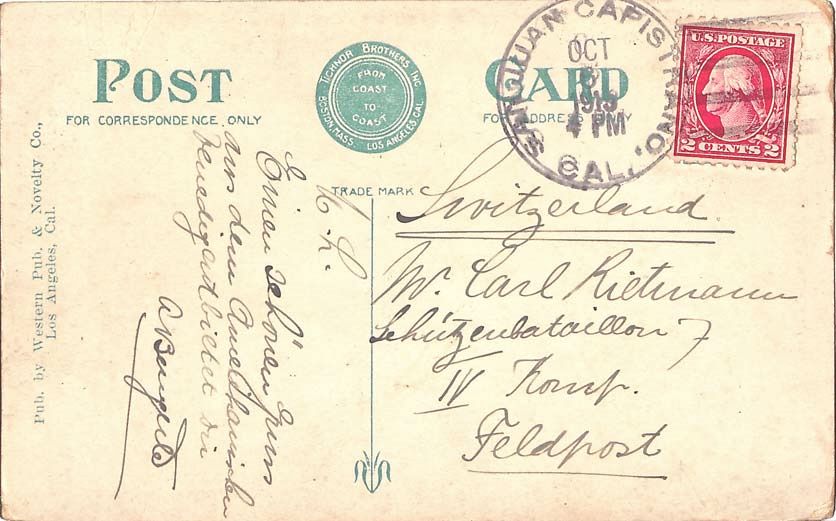 POST CARD
FOR CORRESPONDENCE ONLY
FOR ADDRESS ONLY
TICHNOR BROTHERS INC.
BOSTON, MASS. LOS ANGELES, CAL.
FROM
COAST
TO
COAST
TRADE MARK
SAN JUAN CAPISTRANO,
CAL.
OCT
1919
4 PM
U.S. POSTAGE
2 CENTS 2
Pub. by Western Pub. & Novelty Co.,
Los Angeles, Cal.
L. L.
Einen schönen Gruss
aus dem Amerikanischen
Venedig entbietet dir
Switzerland
Mr. Carl Rietmann
Schützenbataillon 7
IV Komp.
Feldpost